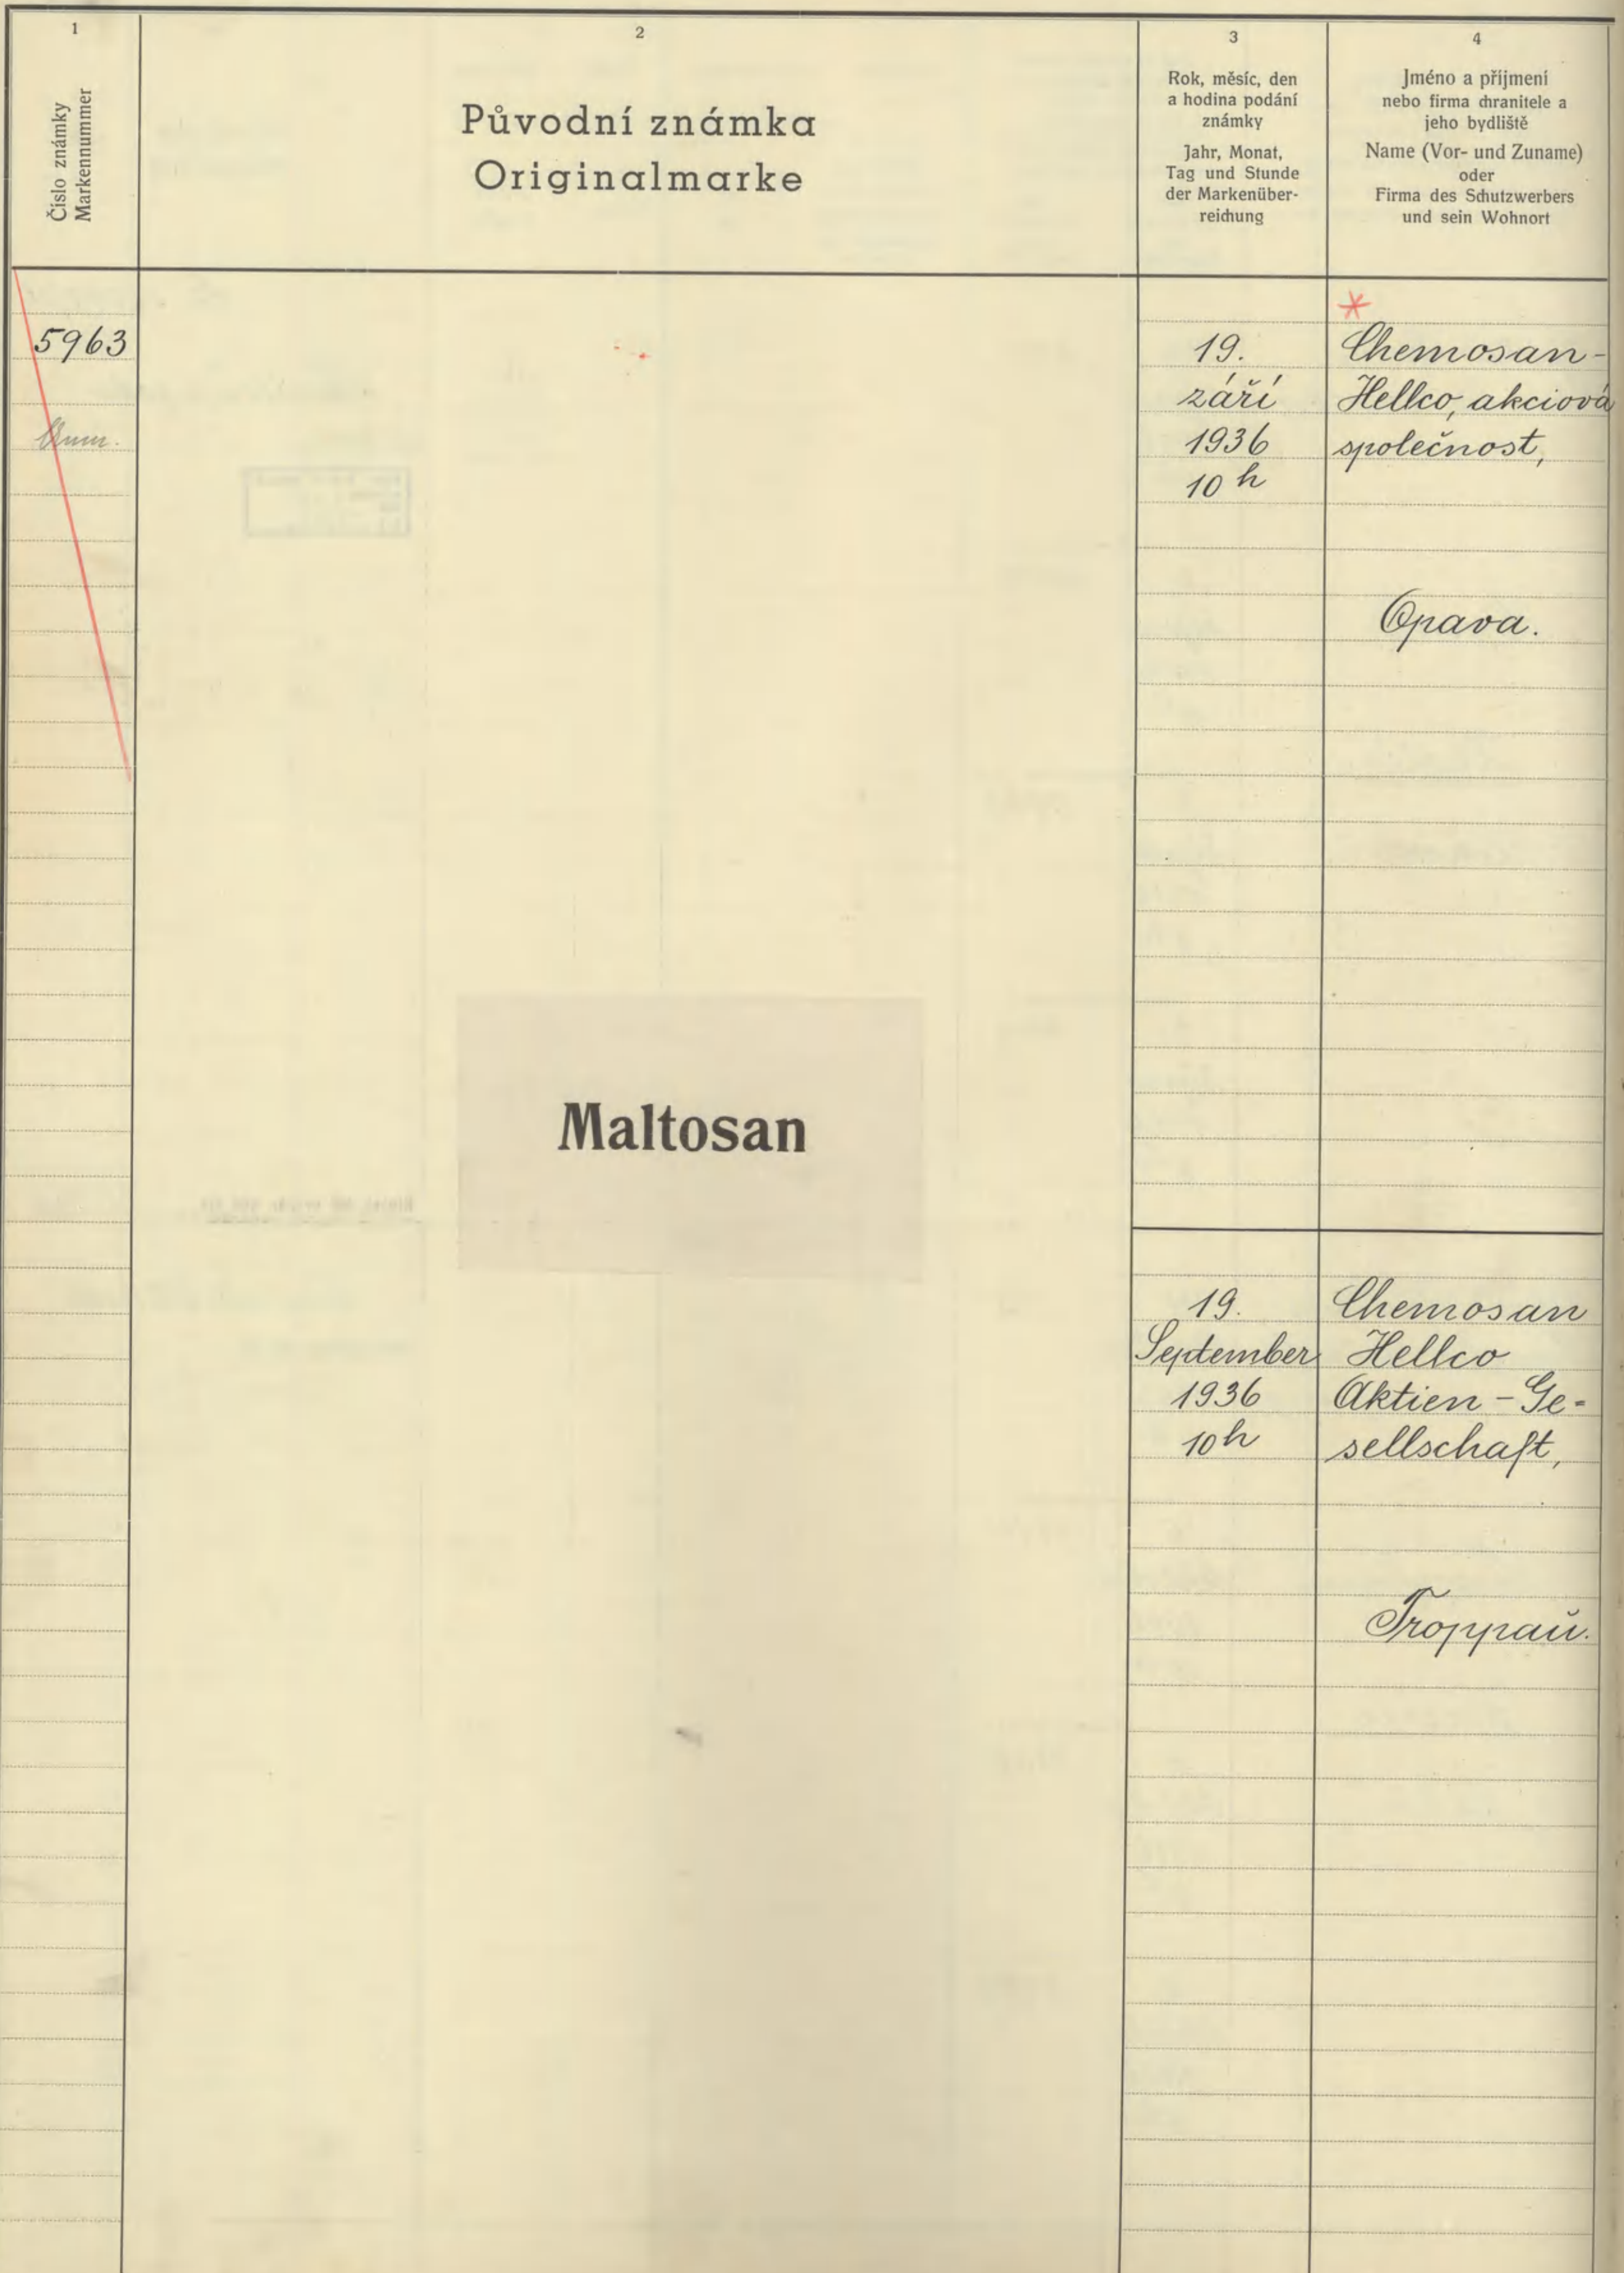 1
Číslo známky
Markennummer
2
Původní známka
Originalmarke
3
Rok, měsíc, den
a hodina podání
známky
Jahr, Monat,
Tag und Stunde
der Markenüber-
reichung
4
Jméno a příjmení
nebo firma chranitele a
jeho bydliště
Name (Vor- und Zuname)
oder
Firma des Schutzwerbers
und sein Wohnort
5963
19.
září
1936
10 h
Chemosan-
Hellco, akciová
společnost,
Opava.
Maltosan
19.
September
1936
10 h
Chemosan
Hellco
Aktien-Ge-
sellschaft,
Troppau.